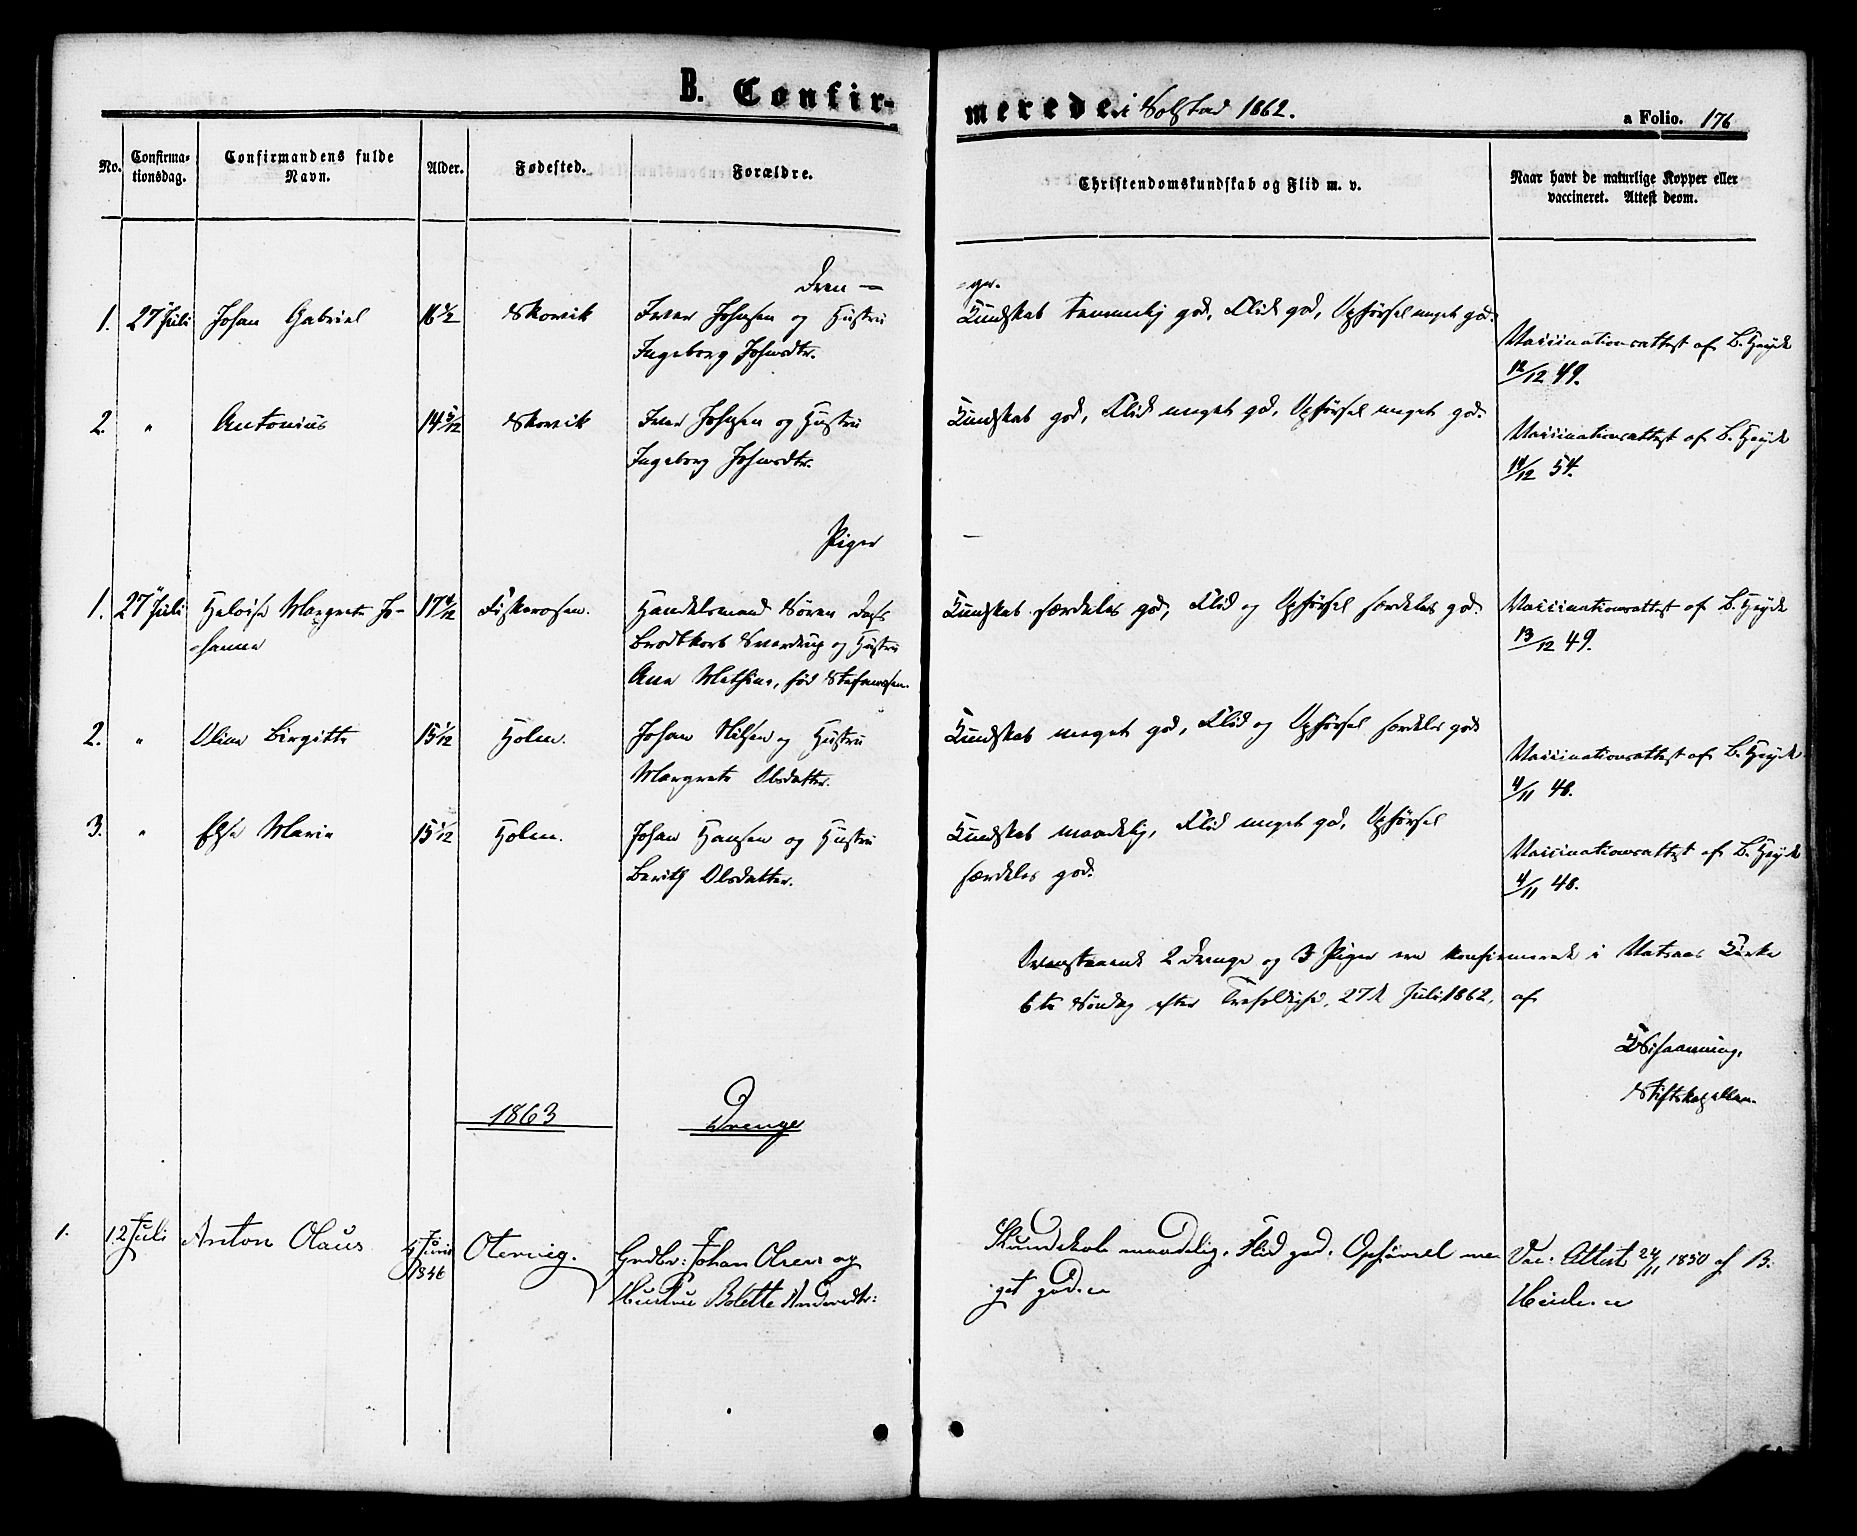 B. Confir-
merede i Solstad 1862.
a Folio. 176
No.
Confirma-
tionsdag.
Confirmandens fulde
Navn.
Alder.
Fødested.
Forældre.
Christendomskundskab og Flid m. v.
Naar havt de naturlige Kopper eller
vaccineret. Attest deom.
Dren-
-ger.
1. 27 Juli Johan Gabriel 16 Skorvik Iver Johnsen og Hustru
Ingeborg Johnsdtr.
Kundskab temmelig god, Flid god, Opførsel meget god.
Vaccinationsattest af B. Heide
12/12 49.
2. " Antonius 14 5/12 Skorvik Iver Johnsen og Hustru
Ingeborg Johnsdtr.
Kundskab god, Flid meget god, Opførsel meget god.
Vaccinationsattest af B. Heide
14/12 54.
Piger
1. 27 Juli Heloise Margrete Jo-
hanna
17 4/12 Fiskerosen. Handelsmand Søren Dass
Brodtkorb Sverdrup og Hustru
Ana Mathine, fød Stefansen.
Kundskab særdeles god, Flid og Opførsel særdeles god.
Vaccinationsattest af B. Heide
13/12 49.
2. " Oline Birgitte 15 1/12 Holm. Johan Nilsen og Hustru
Margrete Olsdatter.
Kundskab meget god, Flid og Opførsel særdeles god
Vaccinationsattest af B. Heide
4/11 48.
3. " Else Marie 15 1/12 Holm. Johan Hansen og Hustru
Berith Olsdatter.
Kundskab maadelig, Flid meget god, Opførsel
særdeles god.
Vaccinationsattest af B. Heide
4/11 48.
Ovenstaaende 2 Drenge og 3 Piger ere konfirmerede i Vatsaas Kirke
6te Søndag efter Trefoldighed, 27de Juli 1862, af
Stiftskapellan.
1863
Drenge
1. 12 Juli Anton Olaus 1846 Otervig. Grdbr: Johan Olsen og
Hustru Bolette Andersdtr:
Kundskab maadelig. Flid god. Opførsel me-
get god.
Vac: Attest 24/11 1850 af B.
Heide.